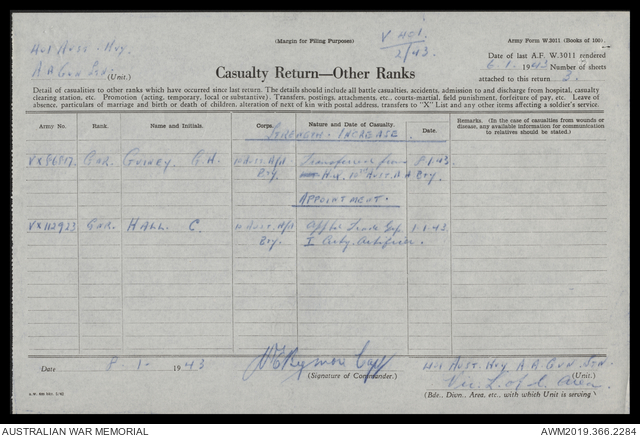 (Margin for Filing Purposes)
Army Form W.3011 (Books of 100).
401 Aust. Hvy.
A A Gun Stn.
(Unit.)
V 401
2/43.
Date of last A.F. W.3011 rendered
6.1.1943 Number of sheets
attached to this return 3.
Casualty Return—Other Ranks
Detail of casualties to other ranks which have occurred since last return. The details should include all battle casualties, accidents, admission to and discharge from hospital, casualty
clearing station, etc. Promotion (acting, temporary, local or substantive). Transfers, postings, attachments, etc., courts-martial, field punishment, forfeiture of pay, etc. Leave of
absence, particulars of marriage and birth or death of children, alteration of next of kin with postal address, transfers to "X" List and any other items affecting a soldier's service.
Army No. Rank. Name and Initials. Corps. Nature and Date of Casualty. Date. Remarks. (In the case of casualties from wounds or disease, any available information for communication to relatives should be stated.)
Strength Increase
Gnr. G.H. 10 Aust. A/A Transferred from 8.1.43.
Bty. H.Q. 10th Aust. A A Bty.
Appointment.
VX112933 Gnr. Hall C. 10 Aust. A/A 1.1.43.
Bty. I Arty. Artificer.
Date 8-1-1943
(Signature of Commander.)
401 Aust. Hvy A.A. Gun. Stn.
(Unit.)
Vic. L. of C. Area.
(Bde., Divn., Area, etc., with which Unit is serving)
AUSTRALIAN WAR MEMORIAL
AWM2019.366.2284